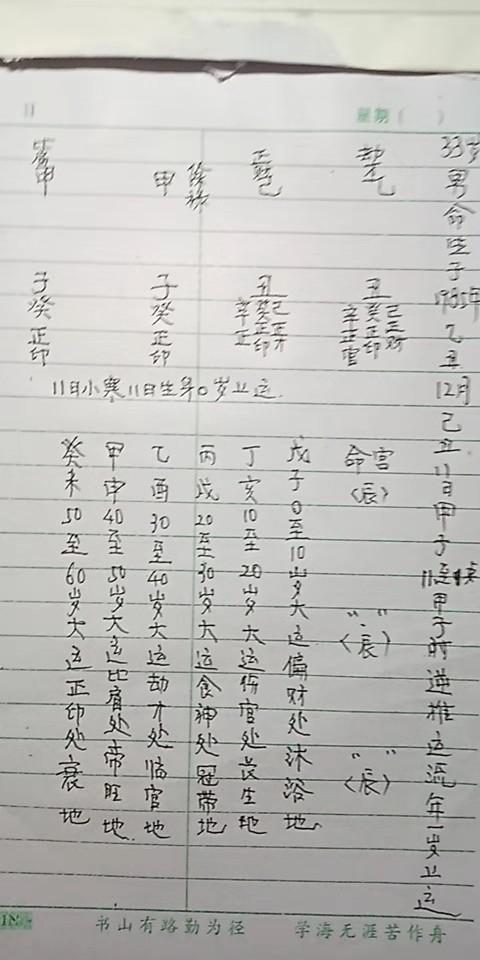 星期（ ）
33岁男命生于1985年乙丑12月己丑11日甲子11至1点甲子时逆推运流年一岁上运
劫才乙
丑
己正财
癸正印
辛正官
命宫
（辰）
（辰）
（辰）
正财己
丑
己正才
癸正印
辛正
甲
子癸正印
甲
子癸正印
11日小寒11日生年0岁上运
戊子0至10岁大运偏财处沐浴地
丁亥10至20岁大运伤官处长生地
丙戌20至30岁大运食神处冠带地
乙酉30至40岁大运劫才处临官地
甲申40至50岁大运比肩处帝旺地
癸未50至60岁大运正印处衰地
书山有路勤为径 学海无涯苦作舟